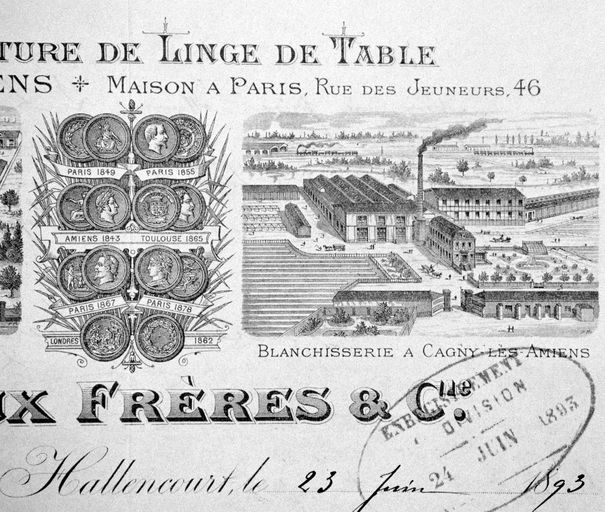 TURE DE LINGE DE TABLE
ENS ✤ MAISON A PARIS, RUE DES JEUNEURS, 46
PARIS 1849 PARIS 1855
AMIENS 1843 TOULOUSE 1865
PARIS 1867 PARIS 1878
LONDRES 1862
BLANCHISSERIE A CAGNY-LES-AMIENS
UX FRÈRES & Cie.
Hallencourt, le 23 Juin 1893
ENREGISTREMENT
DIVISION
24 JUIN 1893